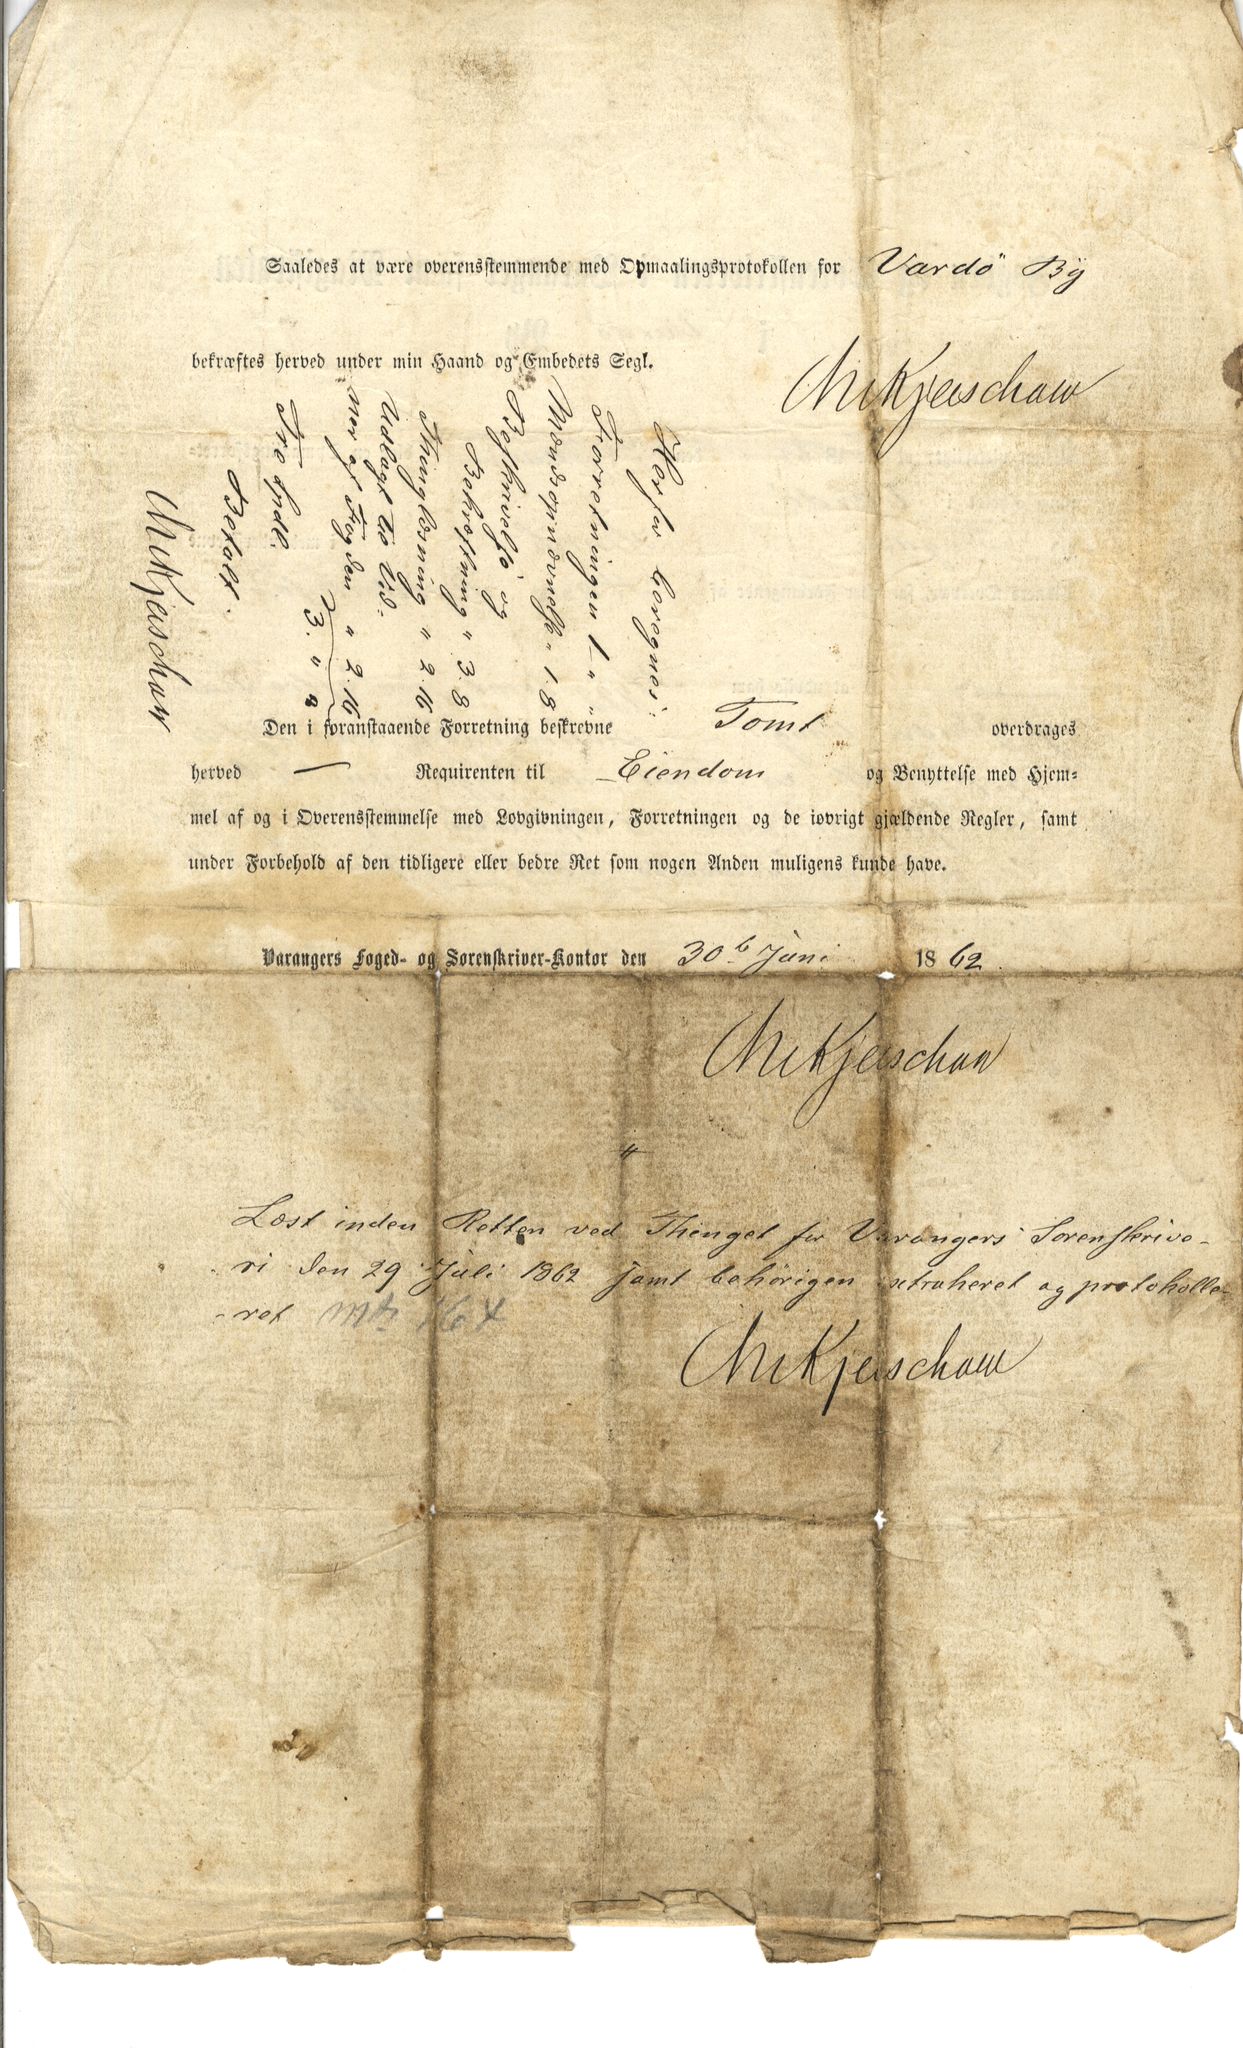 Saaledes at være overensstemmende med Opmaalingsprotokollen for Vardö By
bekræftes herved under min Haand og Embedets Segl.
MKjerschow
Herfor beregnes:
Forretningen 1 - " "
Mændsopnævnelse " 1. 8
Beskrivelse og
Bekræftning " 3. 8
Thinglæsning " 2. 16
Udlagt til Vid-
ner af Fogden " 2. 16
3. " "
Tre Spdl.
Betalt.
MKjerschow
Den i foranstaaende Forretning beskrevne Tomt overdrages
herved — Requirenten til Eiendom og Benyttelse med Hjem-
mel af og i Overensstemmelse med Lovgivningen, Forretningen og de iøvrigt gjældende Regler, samt
under Forbehold af den tidligere eller bedre Ret som nogen Anden muligens kunde have.
Varangers Foged- og Sorenskriver-Kontor den 30 Juni 1862.
MKjerschow
"
Læst inden Retten ved Thinget for Varangers Sorenskrive-
ri den 29 Juli 1862 samt behörigen extraheret og protokolle-
-ret
MKjerschow